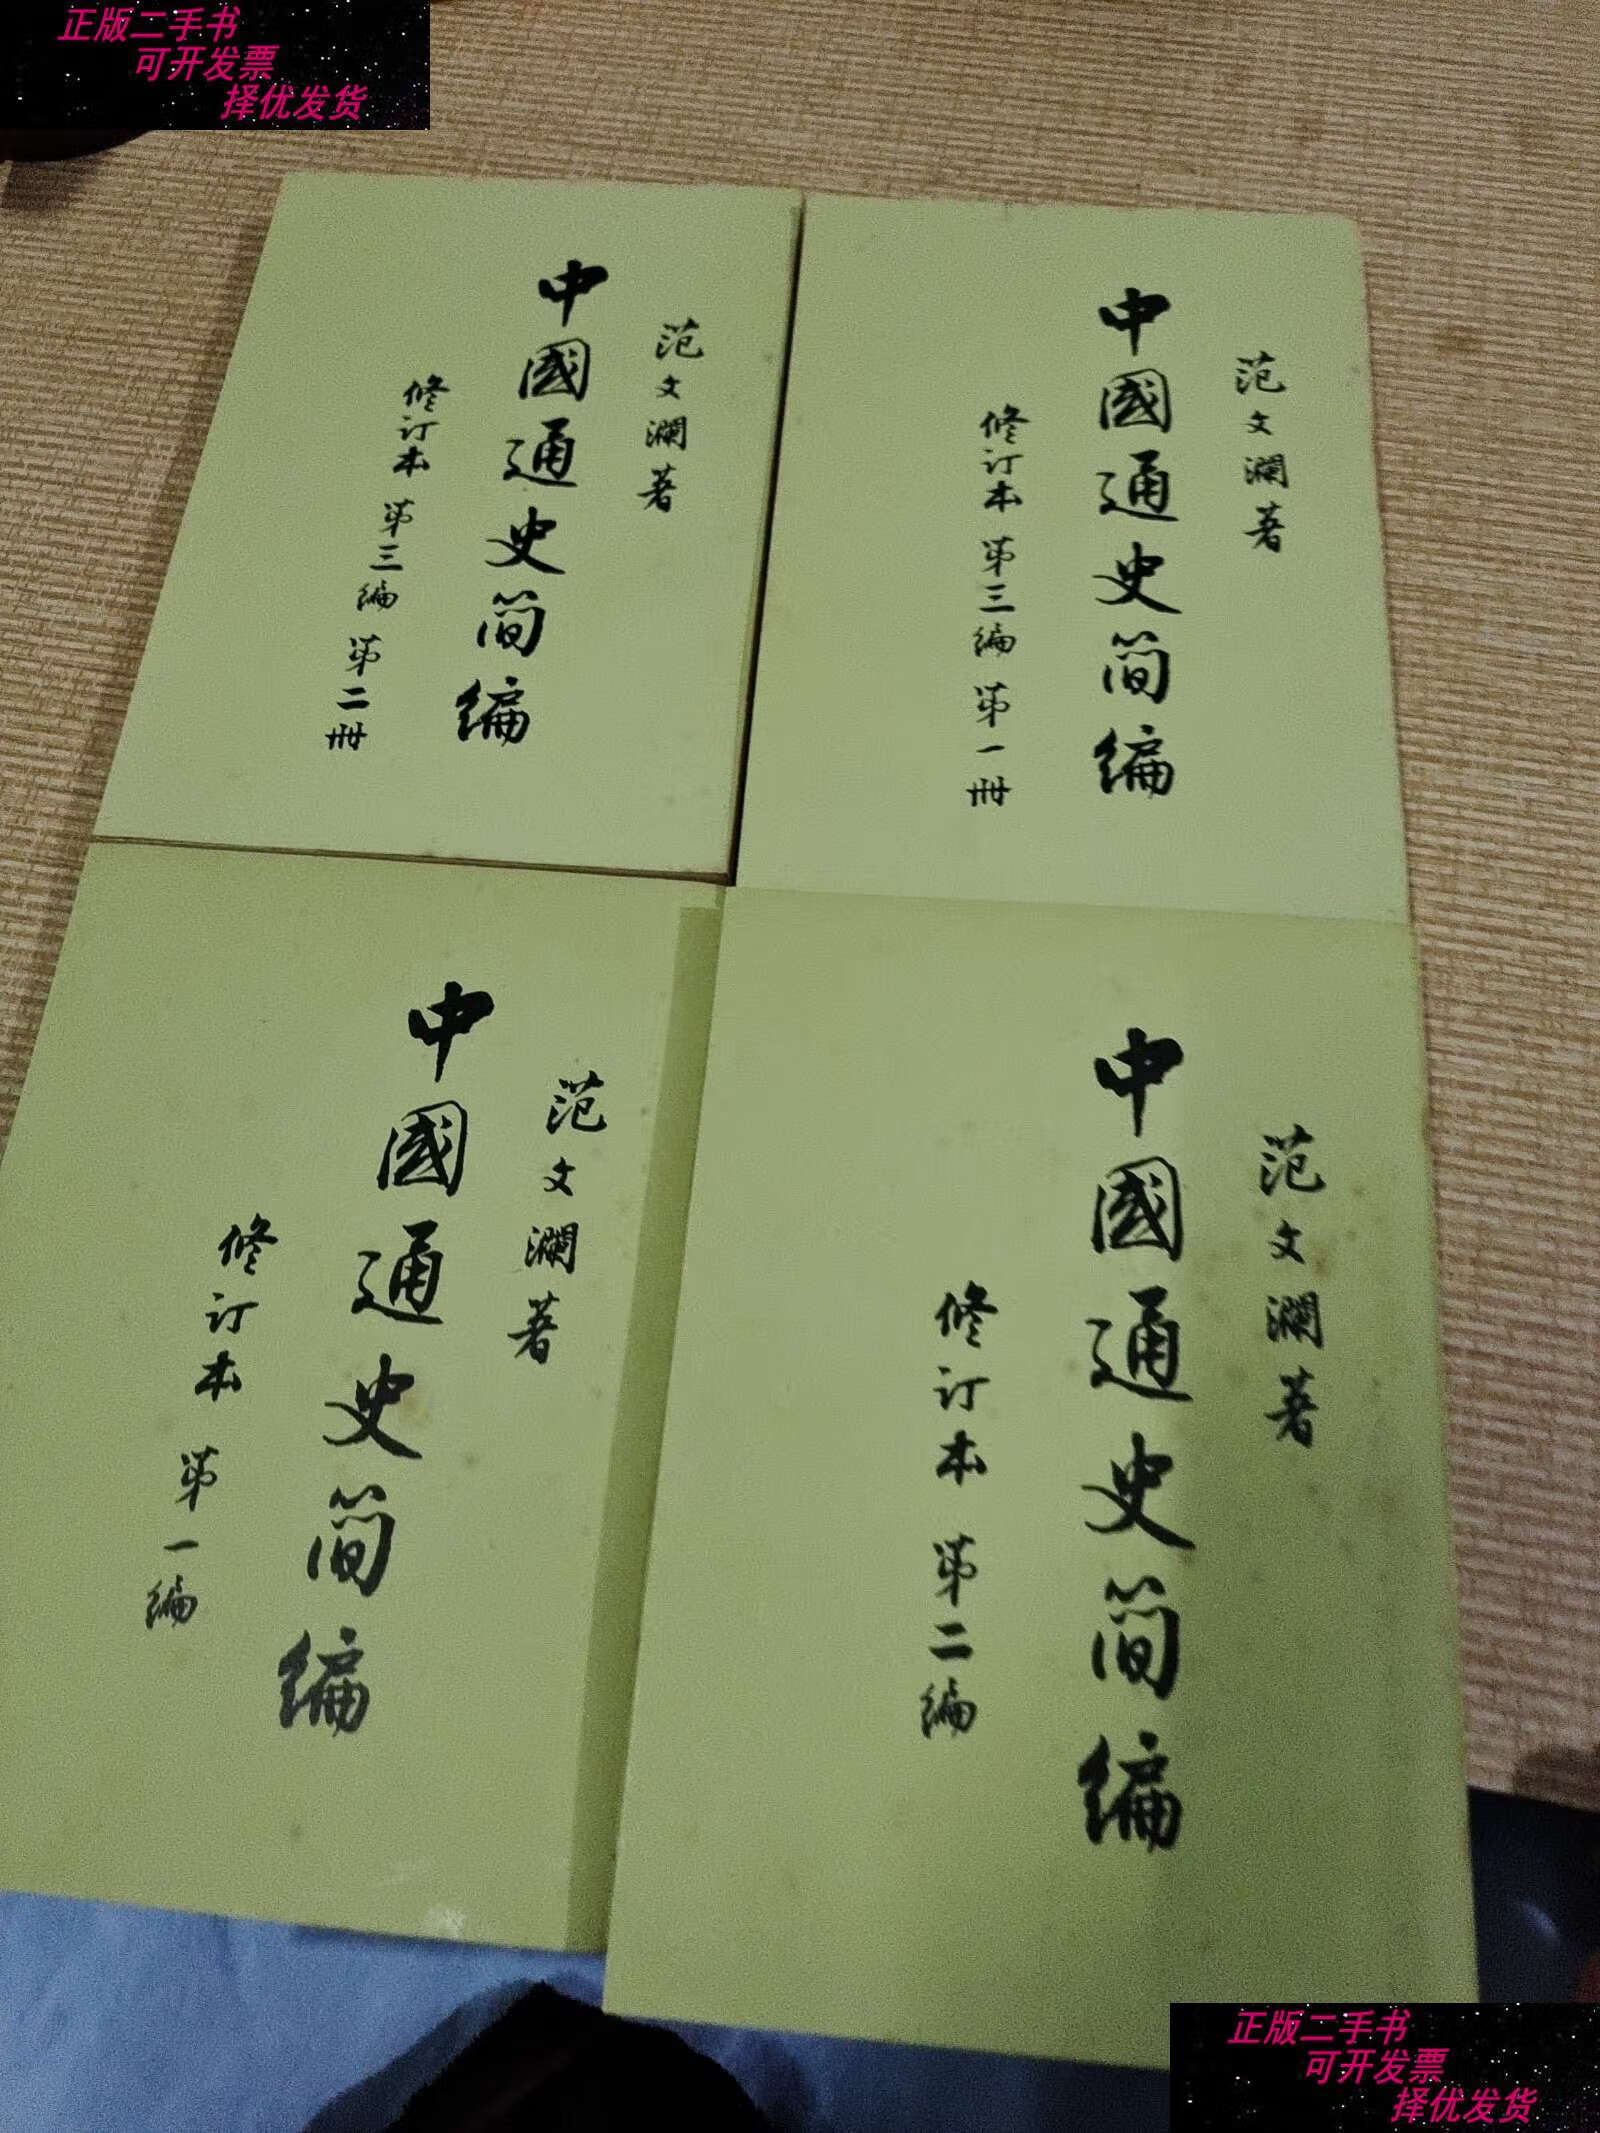 正版二手书
可开发票
择优发货
范文瀾著
中國通史简编
修订本 第三编 第二冊
范文瀾著
中國通史简编
修订本 第三编 第一冊
范文瀾著
中國通史简编
修订本 第一编
范文瀾著
中國通史简编
修订本 第二编
正版二手书
可开发票
择优发货